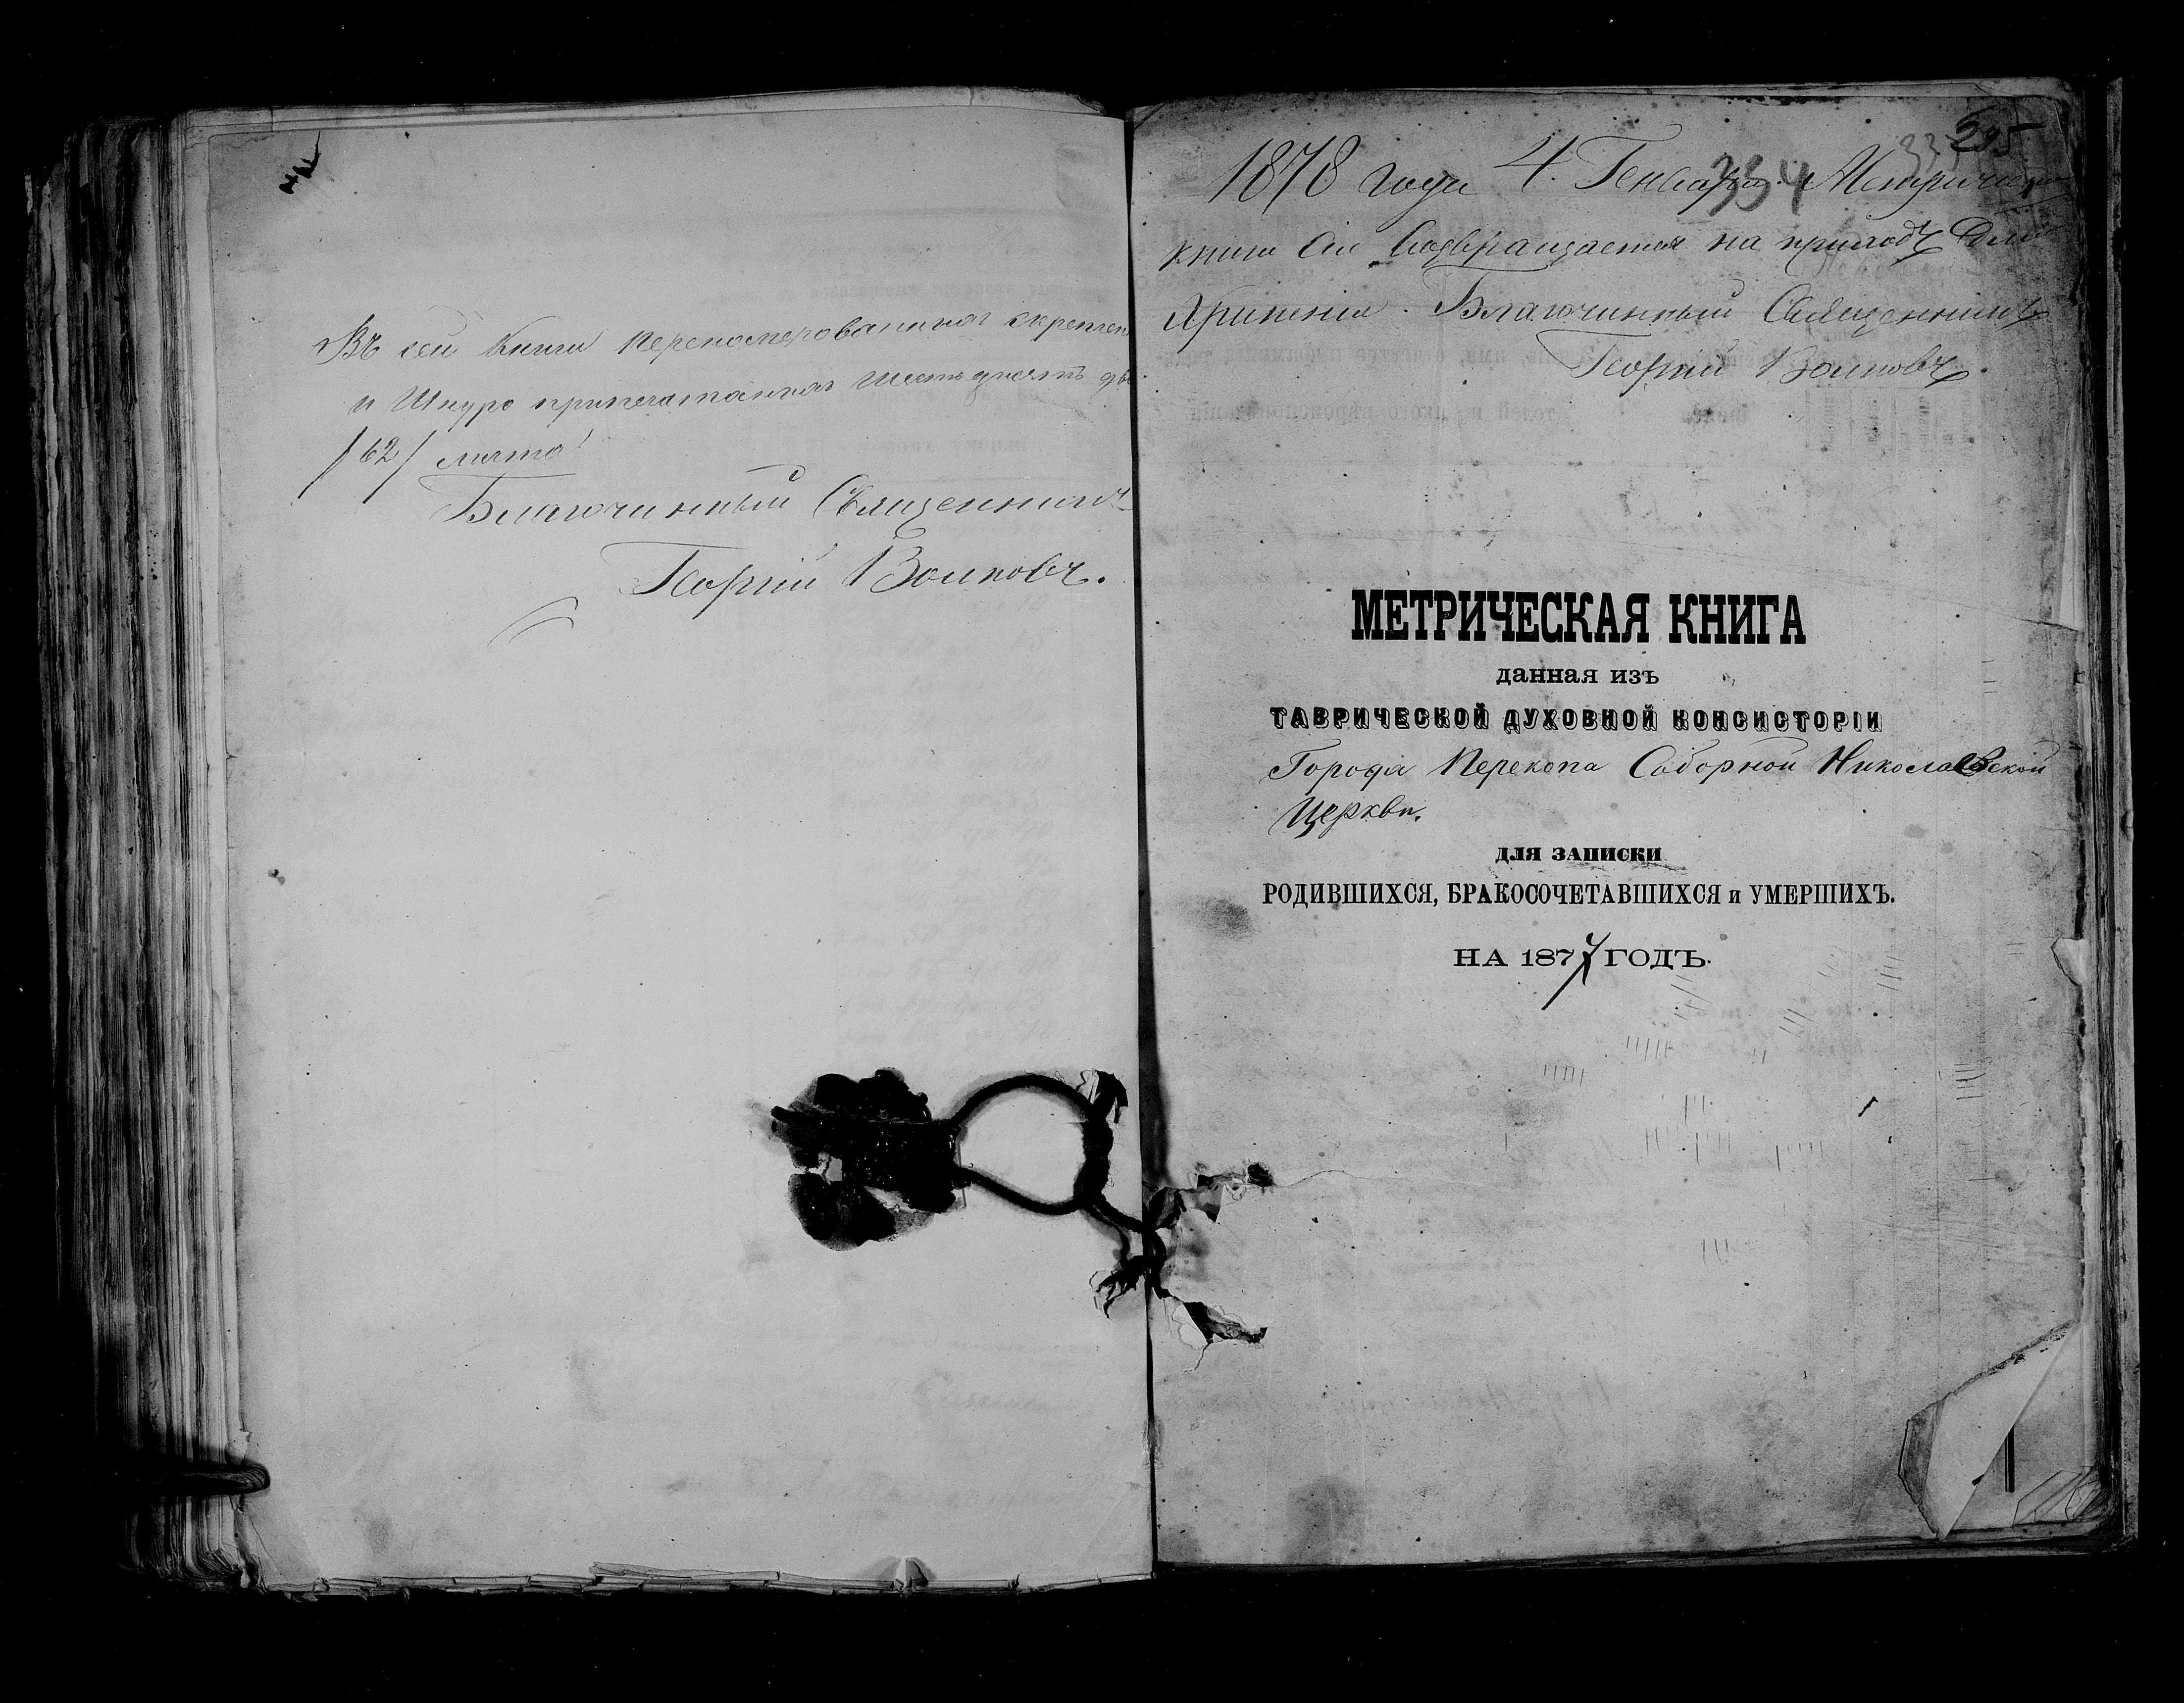 Въ сей Книги переномерованных скреплен
и Шнуро припечатанных Шестьдесятъ два
/62/ листа
Благочинный Священникъ
Георгій Воиновъ.
295
334
1878 года 4. Генваря. Метрическа
книга сія возвращается на приходъ для
Храненія. Благочинный Священникъ
Георгій Воиновъ.
МЕТРИЧЕСКАЯ КНИГА
данная изъ
ТАВРИЧЕСКОЙ ДУХОВНОЙ КОНСИСТОРІИ
Города Перекопа Соборной Николаевской
Церкви.
ДЛЯ ЗАПИСКИ
РОДИВШИХСЯ, БРАКОСОЧЕТАВШИХСЯ и УМЕРШИХЪ.
НА 1877 ГОДЪ.